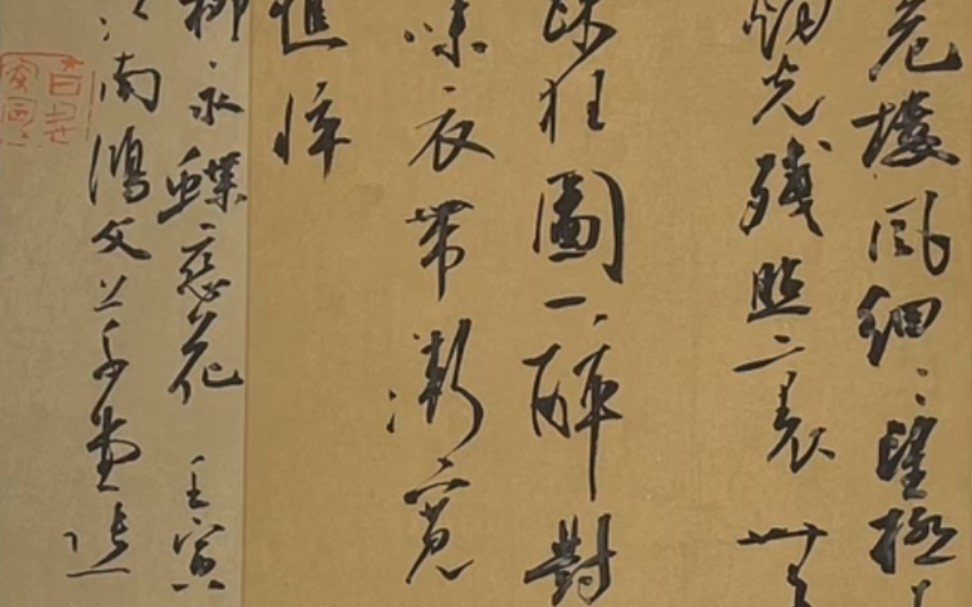 危樓風細〻望極
烟光殘照裏 無
疎狂圖一醉對
味衣帶漸寬
憔悴
柳永蝶戀花 壬寅
南鴻文